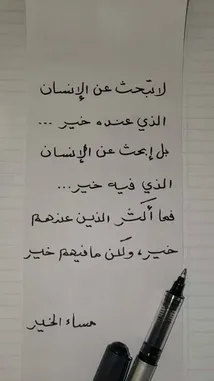 لا تبحث عن الإنسان
الذي عنده خير ...
بل إبحث عن الإنسان
الذي فيه خير...
فما أكثر الذين عندهم
خير، ولكن ما فيهم خير
مساء الخير